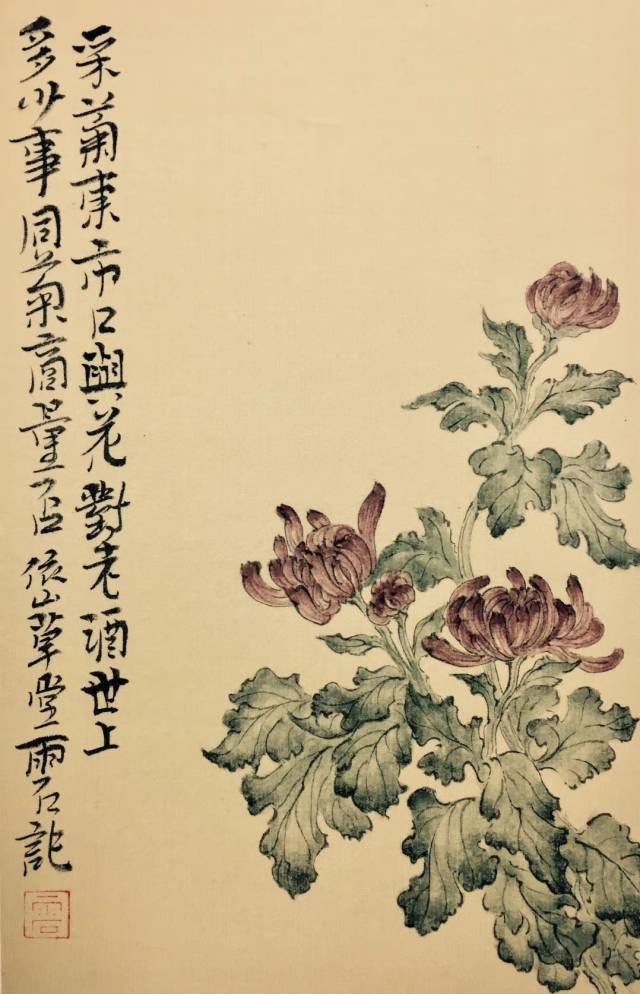 采菊東市口與花對老酒世上
多少事同菊商量否 依山草堂雨石記
雨石